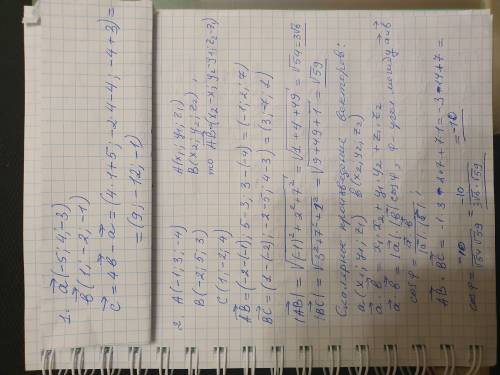 1. a⃗(-5; 4; -3)
b⃗(1; -2; -1)
c⃗=4b⃗-a⃗=(4·1+5; -2·4-4; -4+3)=
=(9; -12; -1)
2. A(-1; 3; -4) A(x₁; y₁; z₁)
B(-2; 5; 3) B(x₂; y₂; z₂),
C(1; -2; 4) то AB⃗=(x₂-x₁; y₂-y₁; z₂-z₁)
AB⃗=(-2-(-1); 5-3; 3-(-4))=(-1; 2; 7)
BC⃗=(1-(-2); -2-5; 4-3)=(3; -7; 1)
|AB⃗|=√((-1)²+2²+7²)=√(1+4+49)=√54=3√6
|BC⃗|=√(3²+7²+1²)=√(9+49+1)=√59
Скалярное произведение векторов:
a⃗(x₁; y₁; z₁) b⃗(x₂; y₂; z₂)
a⃗·b⃗=x₁x₂+y₁y₂+z₁z₂
a⃗·b⃗=|a⃗|·|b⃗|cosφ, φ угол между a⃗ и b⃗
cosφ=a⃗·b⃗/|a⃗|·|b⃗|;
AB⃗·BC⃗=-1·3-2·7+7·1=-3-14+7=
=-10
cosφ=-10/√54·√59=-10/3√6·√59